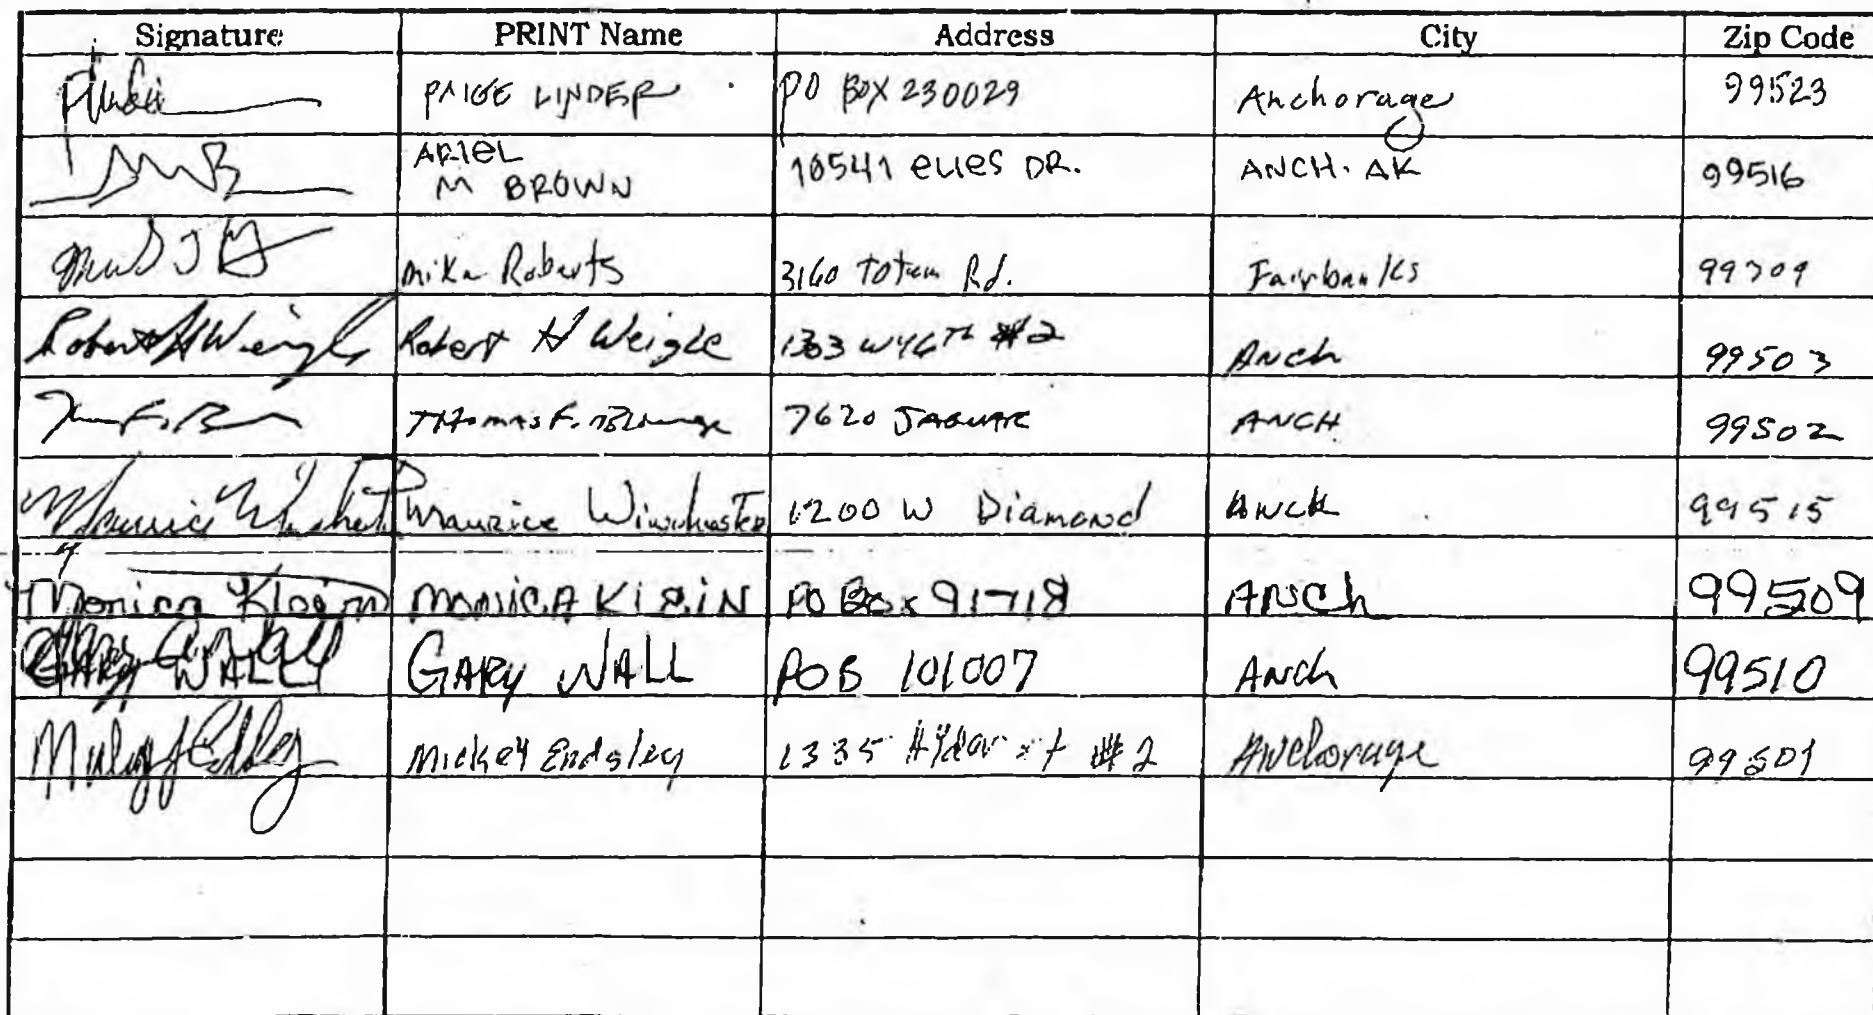 Signature PRINT Name Address City Zip Code
PAIGE LINDER PO BOX 230029 Anchorage 99523
ARIEL
M BROWN 10541 ELIES DR. ANCH. AK 99516
Mike Roberts 3160 Totem Rd. Fairbanks 99709
Robert H Weigle Robert H Weigle 1303 W46TH #2 Anch 99503
THOMAS F. 7620 JAGUAR ANCH 99502
Maurice Winchester Maurice Winchester 1200 W Diamond Anch 99515
Monica MONICA PO Box 91718 ANCh 99509
GARY WALL GARY WALL POB 101007 Anch 99510
Mickey Endsley 1335 #2 Anchorage 99501